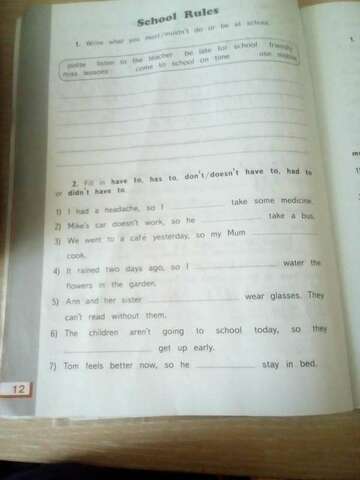 School Rules
1. Write what you must/mustn't do or be at school.
polite listen to the teacher be late for school friendly
miss lessons come to school on time use mobile
2. Fill in have to, has to, don't/doesn't have to, had to
or didn't have to.
1) I had a headache, so I ____________ take some medicine.
2) Mike's car doesn't work, so he ____________ take a bus.
3) We went to a café yesterday, so my Mum ____________
cook.
4) It rained two days ago, so I ____________ water the
flowers in the garden.
5) Ann and her sister ____________ wear glasses. They
can't read without them.
6) The children aren't going to school today, so they
____________ get up early.
7) Tom feels better now, so he ____________ stay in bed.
12
1.